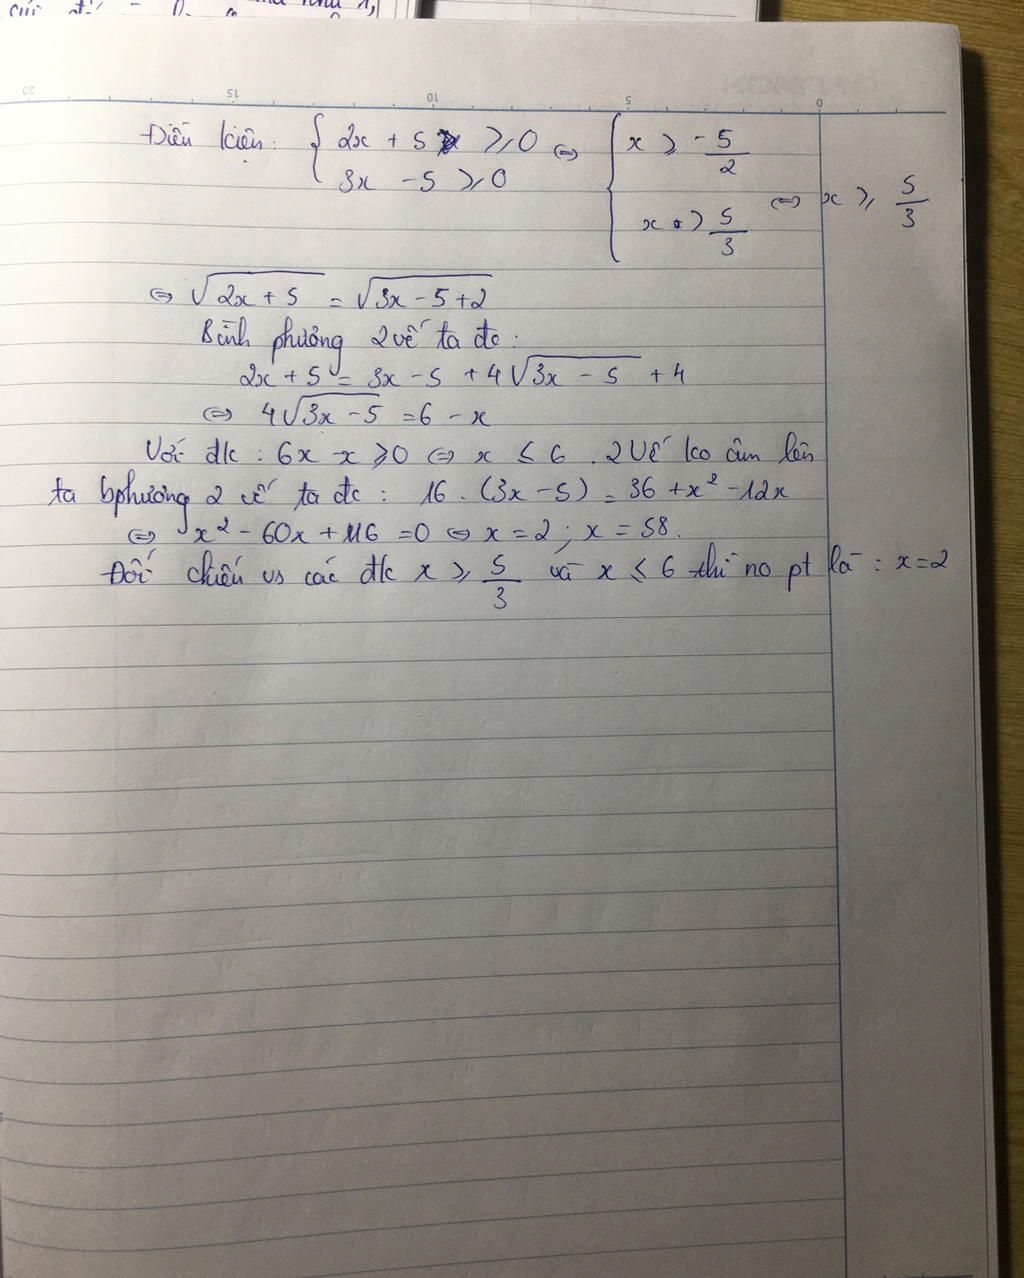 20 15 10 5 0
Điều kiện: { 2x + 5 ≥ 0 ⇔ { x ≥ -5/2
3x - 5 ≥ 0
x ≥ 5/3 ⇔ x ≥ 5/3
⇔ √(2x + 5) = √(3x - 5 + 2)
Bình phương 2 vế ta đc :
2x + 5 = 3x - 5 + 4√(3x - 5) + 4
⇔ 4√(3x - 5) = 6 - x
Với đk : 6x - x ≥ 0 ⇔ x ≤ 6 . 2 vế ko âm lên
ta bphương 2 vế ta đc : 16 . (3x - 5) = 36 + x² - 12x
⇔ x² - 60x + 116 = 0 ⇔ x = 2 ; x = 58.
Đối chiếu vs các đk x ≥ 5/3 và x ≤ 6 thì no pt là : x = 2